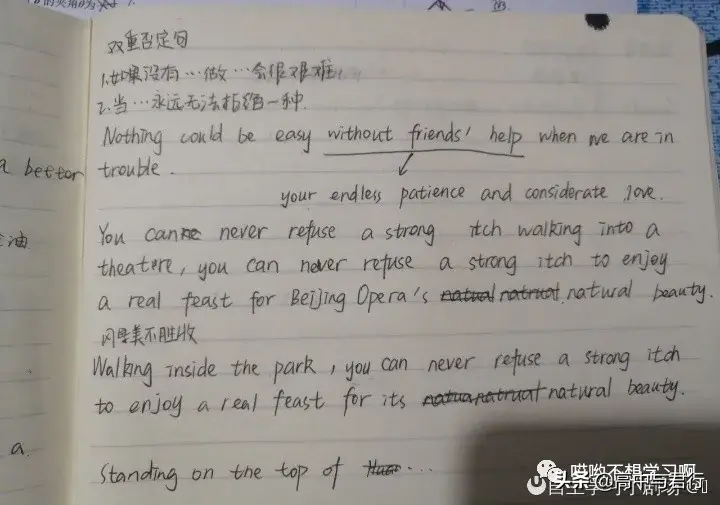 双重否定句
1.如果没有…做…会很艰难
2.当…永远无法拒绝一种
Nothing could be easy without friends' help when we are in
a better
trouble.
your endless patience and considerate love.
You can never refuse a strong itch walking into a
theatre, you can never refuse a strong itch to enjoy
a real feast for Beijing Opera's natual natrual natural beauty.
风景美不胜收
Walking inside the park, you can never refuse a strong itch
to enjoy a real feast for its natua natrual natural beauty.
a.
Standing on the top of ...
哎哟不想学习啊